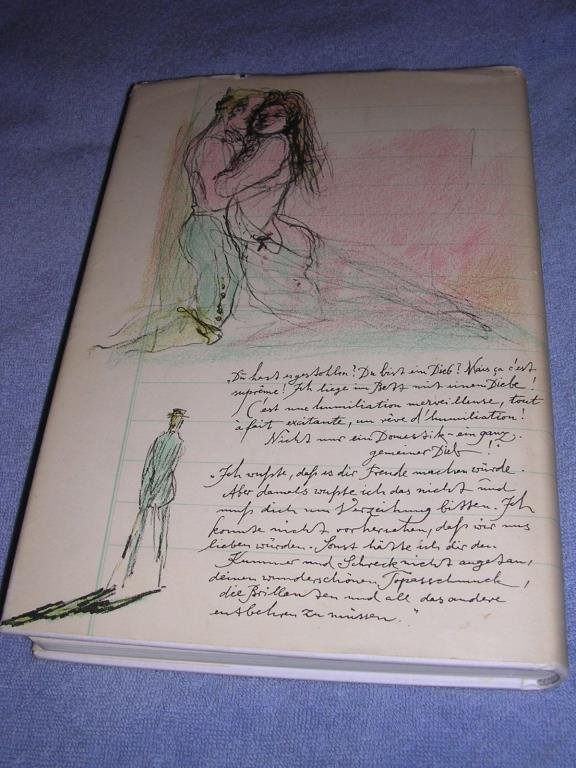 „Du hast es gestohlen? Du bist ein Dieb? Mais ça c'est
suprême! Ich liege im Bett mit einem Diebe!
C'est une humiliation merveilleuse, tout
à fait excitante, un rêve d'humiliation!
Nicht nur ein Domestik – ein ganz
gemeiner Dieb!“
„Ich wußte, daß es dir Freude machen würde.
Aber damals wußte ich das nicht und
muß dich um Verzeihung bitten. Ich
konnte nicht vorhersehen, daß wir uns
lieben würden. Sonst hätte ich dir den
Kummer und Schreck nicht angetan,
deinen wunderschönen Topasschmuck,
die Brillanten und all das andere
entbehren zu müssen.“